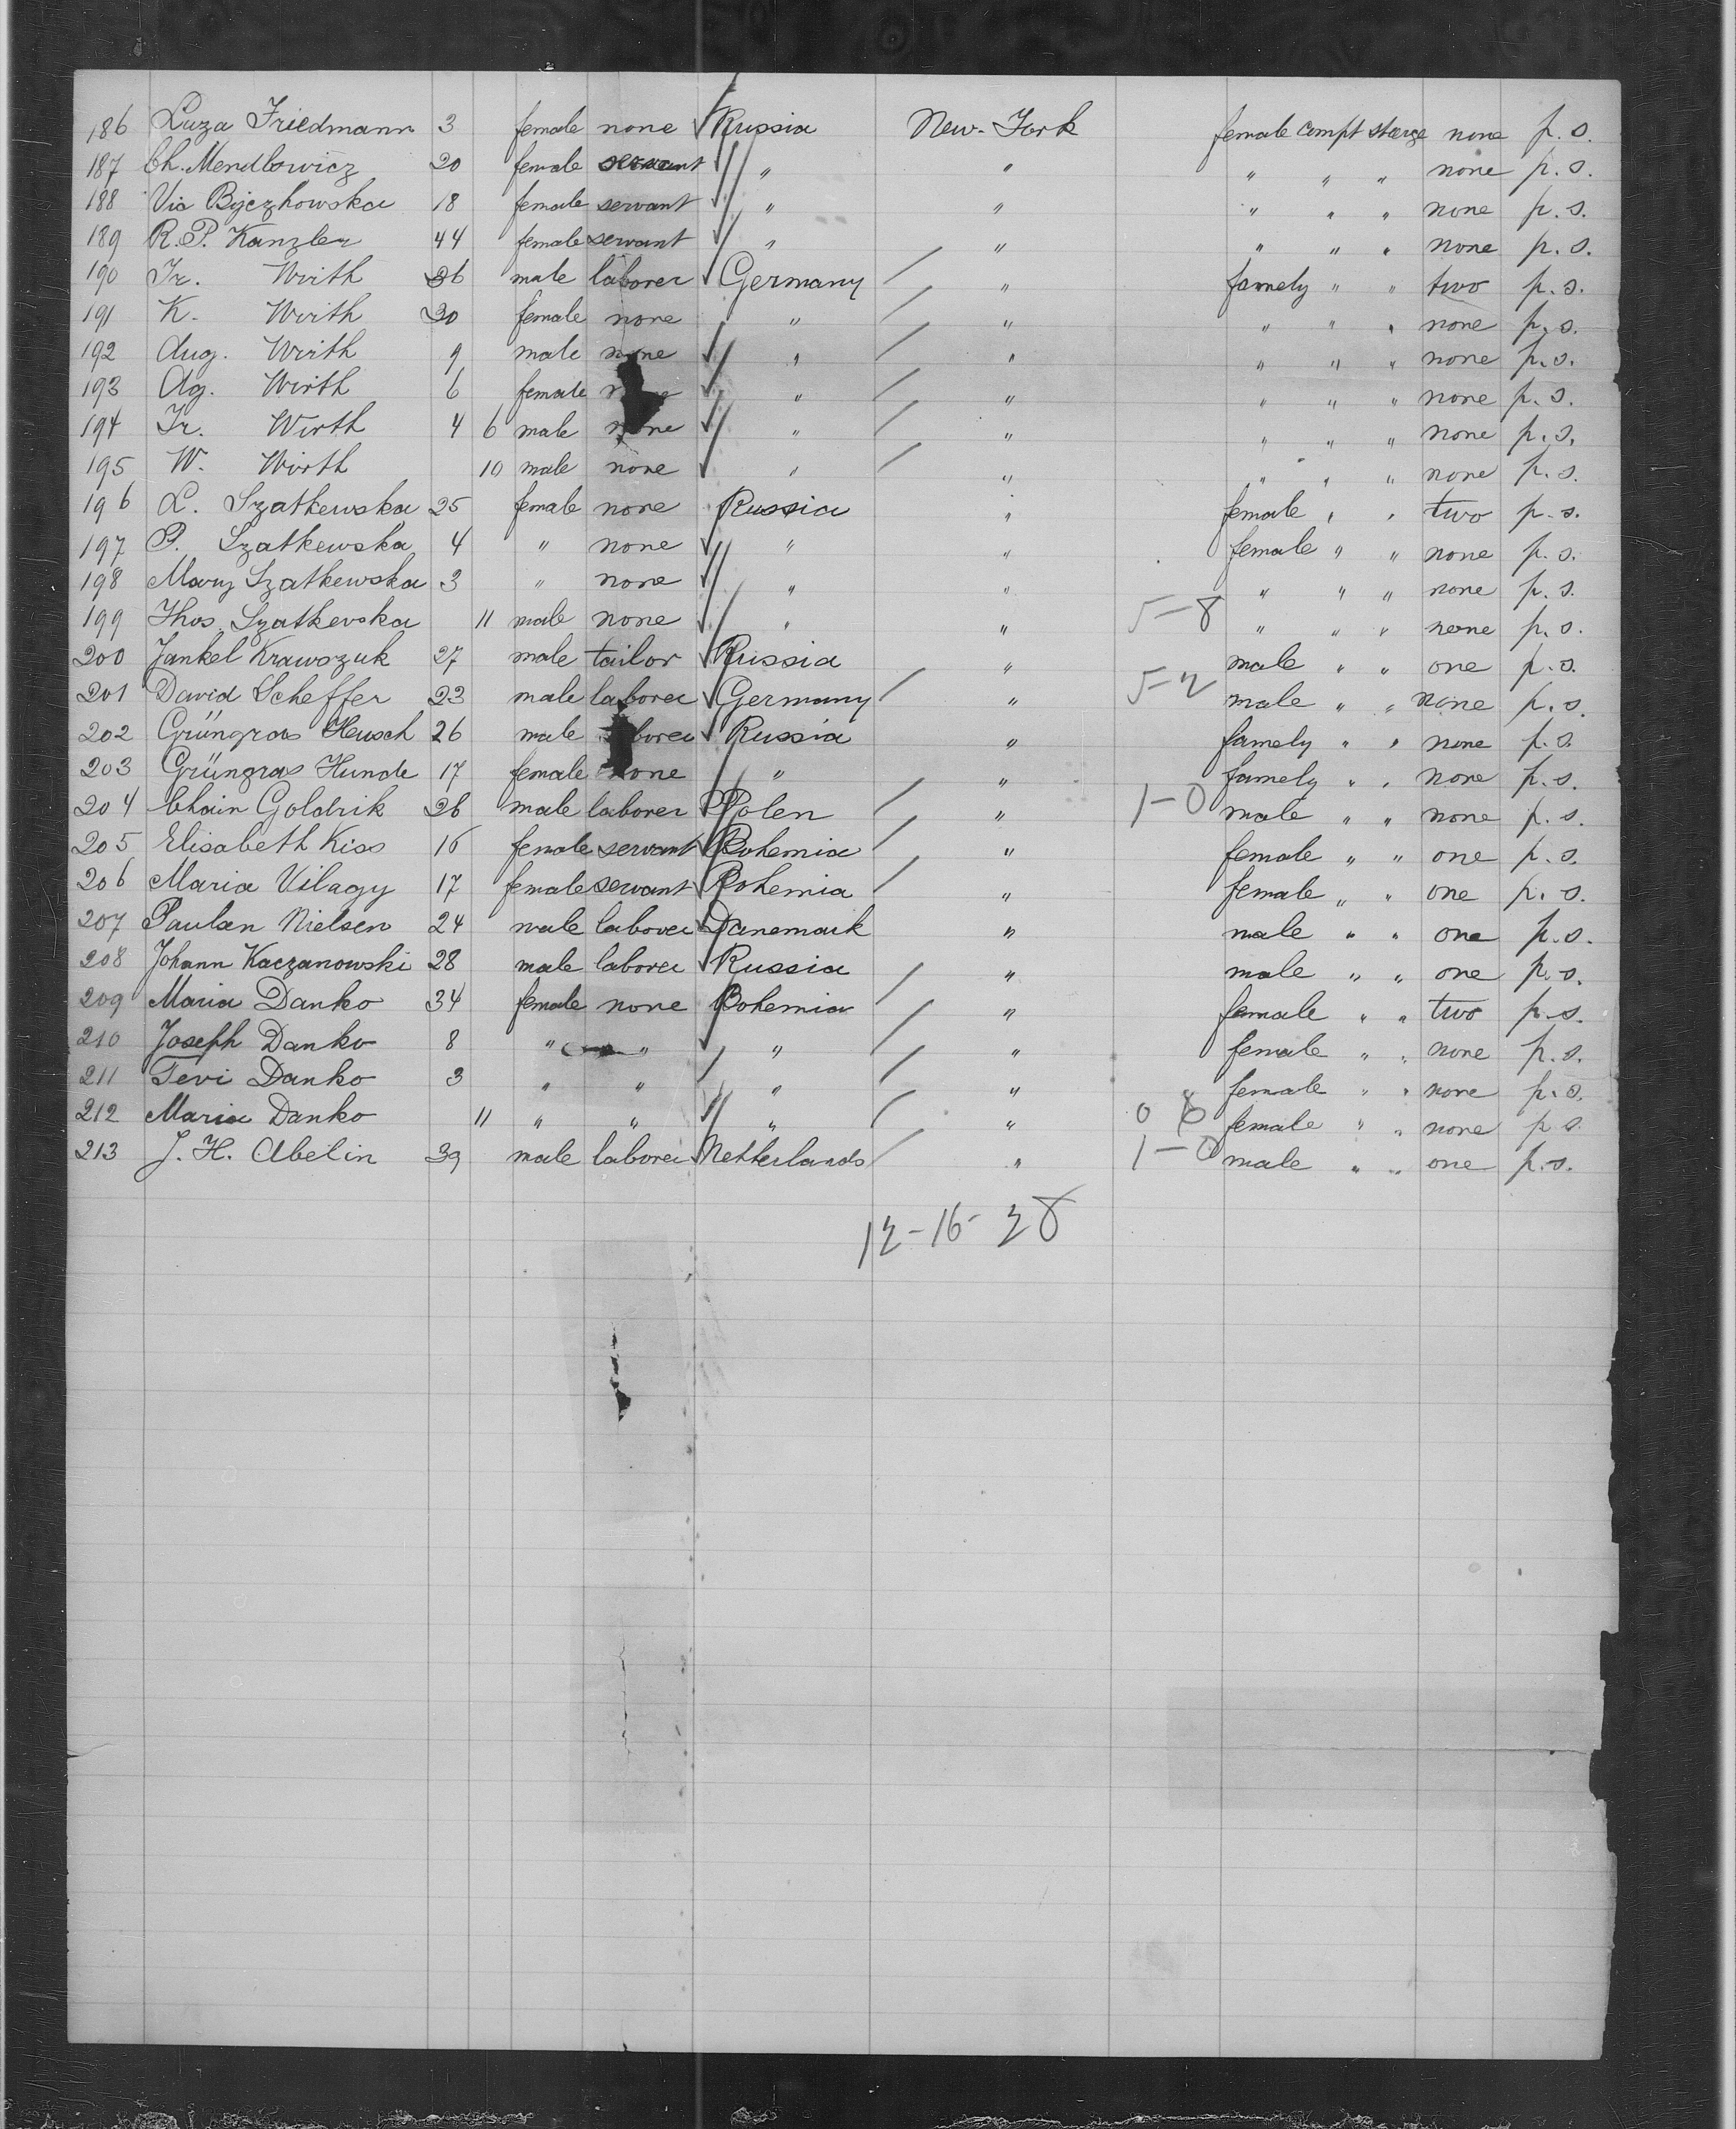 186 Luza Friedmann 3 female none Russia New-York female compt sterge none p. s.
187 Ch. Mendlowicz 20 female servant " " " " " none p. s.
188 Via Byczkowska 18 female servant " " " " " none p. s.
189 R. P. Kanzler 44 female servant " " " " " none p. s.
190 Fr. Wirth 36 male laborer Germany " famely " " two p. s.
191 K. Wirth 30 female none " " " " " none p. s.
192 Aug. Wirth 9 male none " " " " " none p. s.
193 Ag. Wirth 6 female none " " " " " none p. s.
194 Fr. Wirth 4 6 male none " " " " " none p. s.
195 W. Wirth 10 male none " " " " " none p. s.
196 L. Szatkewska 25 female none Russia " female " " two p. s.
197 P. Szatkewska 4 " none " " female " " none p. s.
198 Mary Szatkewska 3 " none " " " " " none p. s.
199 Thos. Szatkevska 11 male none " " 5-8 " " " none p. s.
200 Jankel Krawszuk 27 male tailor Russia " male " " one p. s.
201 David Scheffer 23 male laborer Germany " 5-2 male " " none p. s.
202 Grüngras Heusch 26 male laborer Russia " famely " " none p. s.
203 Grüngras Hunde 17 female none " " famely " " none p. s.
204 Chain Goldrik 26 male laborer Polen " 1-0 male " " none p. s.
205 Elisabeth Kiss 16 female servant Bohemia " female " " one p. s.
206 Maria Vilagy 17 female servant Bohemia " female " " one p. s.
207 Paulsen Nielsen 24 male laborer Danemark " male " " one p. s.
208 Johann Kaczanowski 28 male laborer Russia " male " " one p. s.
209 Maria Danko 34 female none Bohemia " female " " two p. s.
210 Joseph Danko 8 " " " " female " " none p. s.
211 Tevi Danko 3 " " " " female " " none p. s.
212 Maria Danko 11 " " " " 0 8 female " " none p. s.
213 J. H. Abelin 39 male laborer Netherlands " 1-0 male " " one p. s.
12-16-28